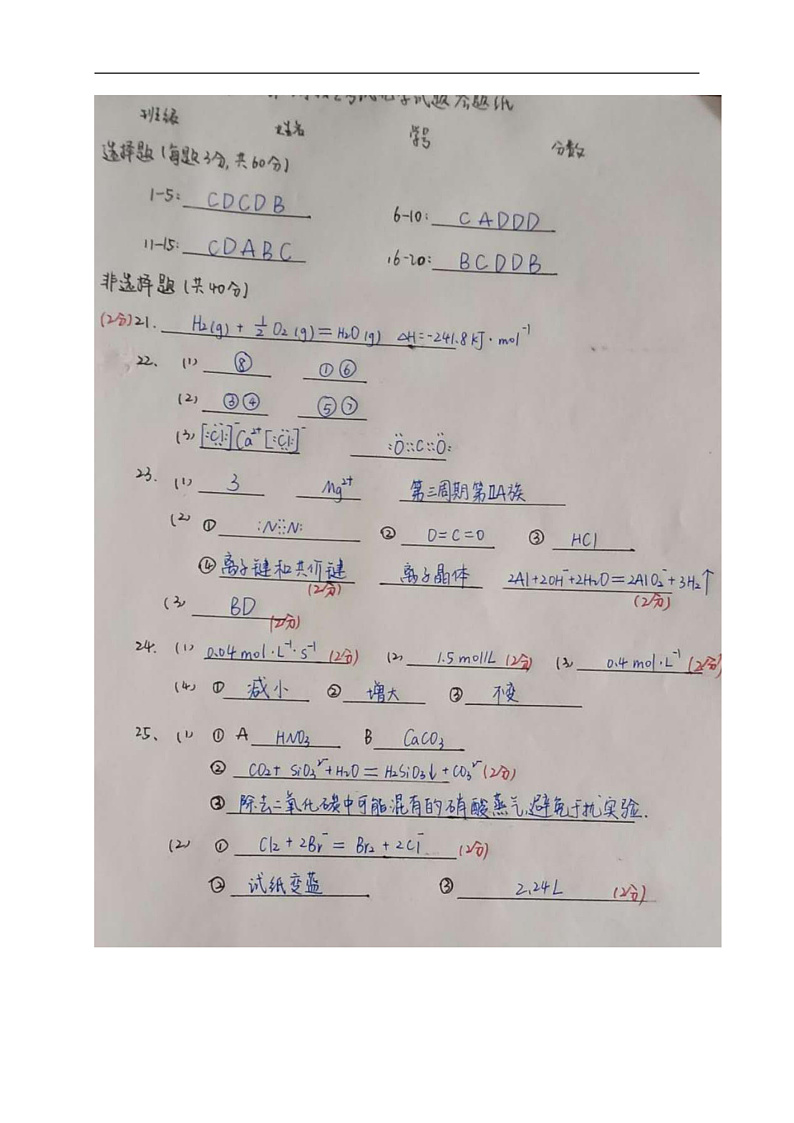 试题答题纸
班级 姓名 学号 分数
选择题(每题3分,共60分)
1-5: CDCDB 6-10: CADDD
11-15: CDABC 16-20: BCDDB
非选择题(共40分)
(2分)21. H₂(g) + ½ O₂(g) = H₂O(g) △H=-241.8kJ·mol⁻¹
22、(1) ⑧ ①⑥
(2) ③④ ⑤⑦
(3) [:C̈l̤:]⁻Ca²⁺[:C̈l̤:]⁻ :Ö::C::Ö:
23. (1) 3 Mg²⁺ 第三周期第ⅡA族
(2) ① :N⋮⋮N: ② O=C=O ③ HCl
④ 离子键和共价键 (2分) 离子晶体 2Al+2OH⁻+2H₂O=2AlO₂⁻+3H₂↑ (2分)
(3) BD (2分)
24. (1) 0.04mol·L⁻¹·s⁻¹ (2分) (2) 1.5mol/L (2分) (3) 0.4mol·L⁻¹ (2分)
(4) ① 减小 ② 增大 ③ 不变
25、(1) ① A HNO₃ B CaCO₃
② CO₂+SiO₃²⁻+H₂O=H₂SiO₃↓+CO₃²⁻ (2分)
③ 除去二氧化碳中可能混有的硝酸蒸气,避免干扰实验.
(2) ① Cl₂+2Br⁻=Br₂+2Cl⁻ (2分)
② 试纸变蓝 ③ 2.24L (2分)